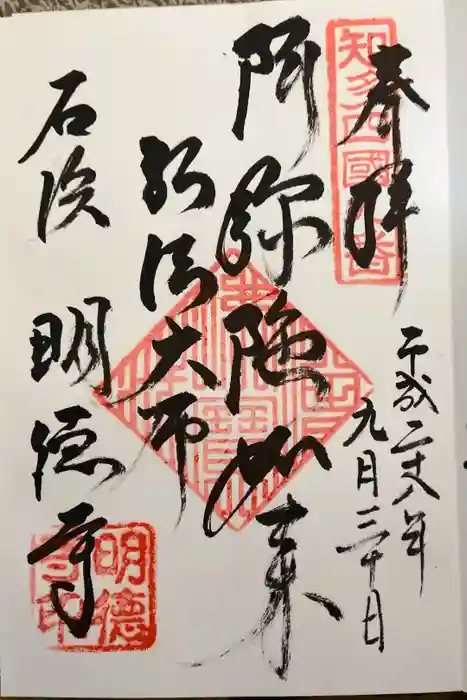 奉拝
知多四國
番
平成二十八年
九月三十日
阿弥陀如来
弘法大师
石浜 明徳寺
明德
印